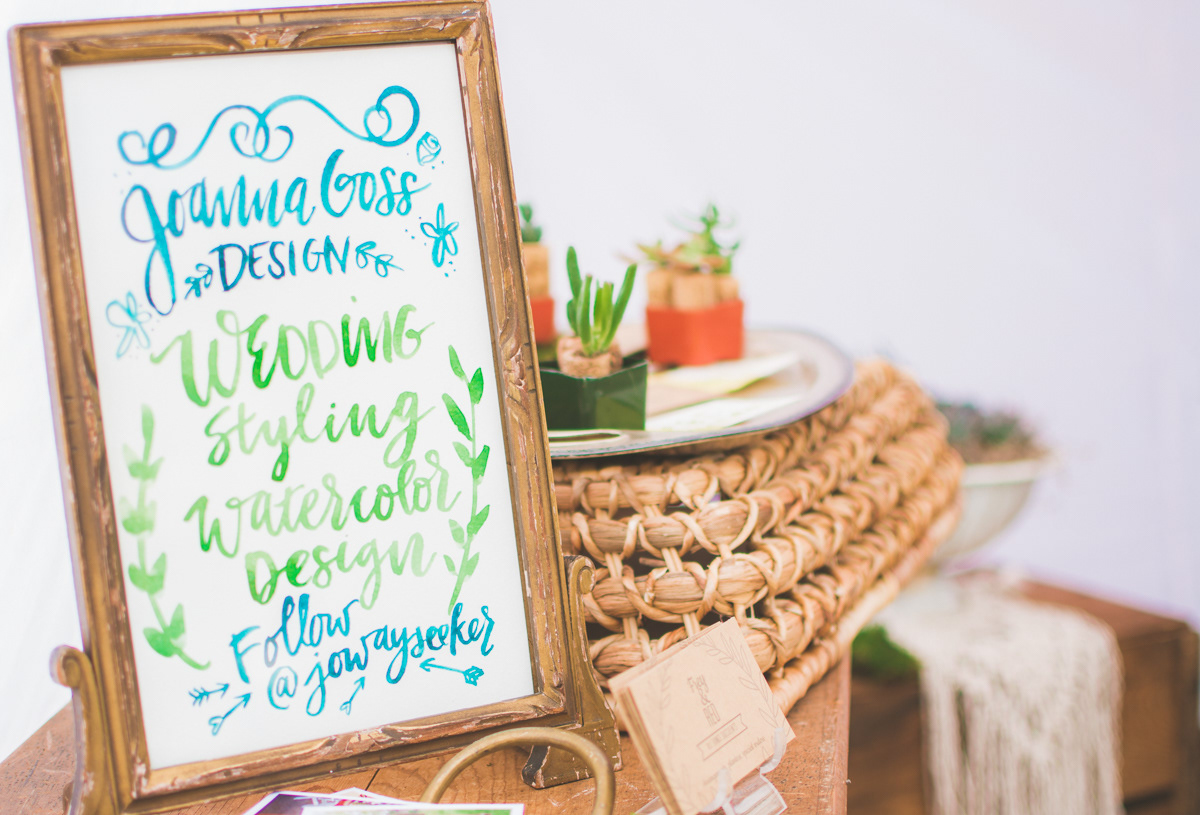 Joanna Goss
DESIGN
WEDDING
Styling
watercolor
Design
Follow
@jowayseeker